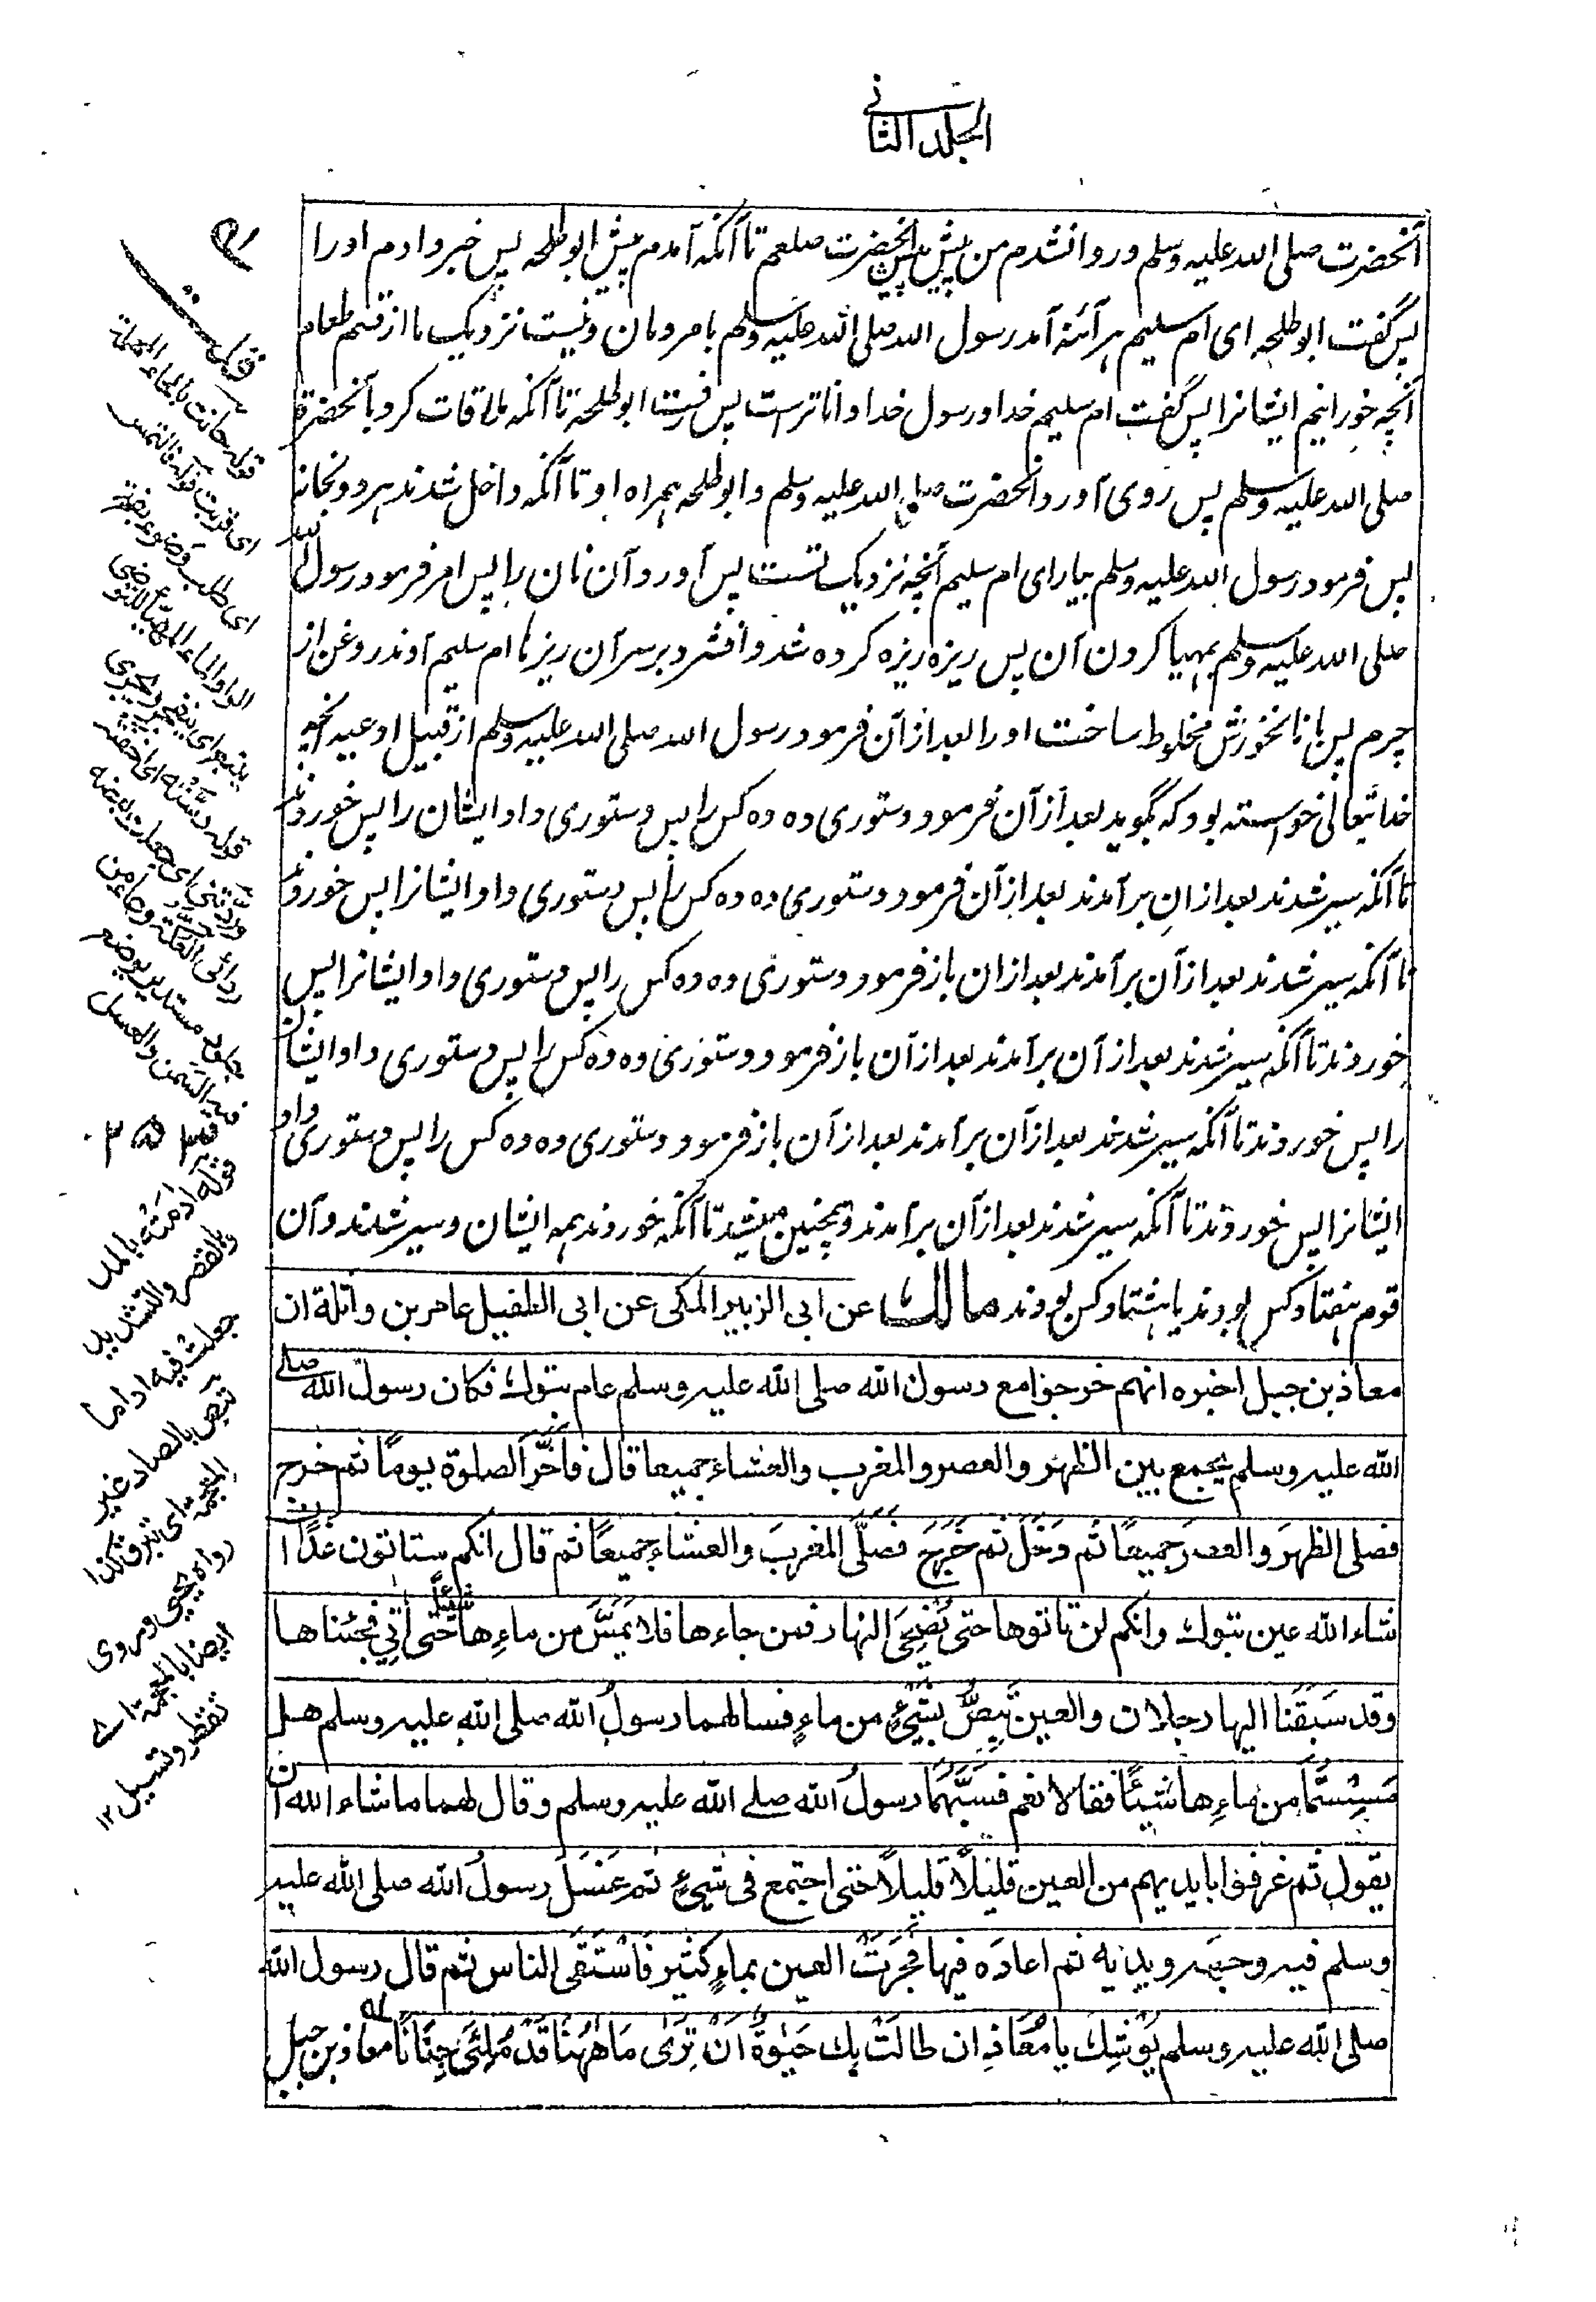 المجلد الثانی
آنحضرت صلی الله علیه وسلم و روانشدم من پیش پیش آنحضرت صلعم تا آنکه آمدم پیش ابو طلحه پس خبر دادم او را
پس گفت ابو طلحه ای ام سلیم هر آئنه آمد رسول الله صلی الله علیه وسلم با مردمان و نیست نزدیک ما از قسم طعام
آنچه خورانیم ایشانرا پس گفت ام سلیم خدا و رسول خدا داناتر است پس رفت ابو طلحه تا آنکه ملاقات کرد بآنحضرة
صلی الله علیه وسلم پس روی آورد آنحضرت صلی الله علیه وسلم و ابو طلحه همراه او تا آنکه داخل شدند هر دو بخانه
پس فرمود رسول الله علیه وسلم بیار ای ام سلیم آنچه نزدیک تست پس آورد آن نان را پس امر فرمود رسول الله
صلی الله علیه وسلم بمهیا کردن آن پس ریزه ریزه کرده شد و افشرد بر سر آن ریزها ام سلیم آوند روغن از
چرم پس با نانخورش مخلوط ساخت او را بعد از آن فرمود رسول الله صلی الله علیه وسلم از قبیل ادعیه آنچه
خدایتعالی خواسته بود که بگوید بعد از آن فرمود دستوری ده ده کس را پس دستوری داد ایشان را پس خوردند
تا آنکه سیر شدند بعد ازان برآمدند بعد از آن فرمود دستوری ده ده کس را پس دستوری داد ایشانرا پس خوردند
تا آنکه سیر شدند بعد از آن برآمدند بعد ازان باز فرمود دستوری ده ده کس را پس دستوری داد ایشانرا پس
خوردند تا آنکه سیر شدند بعد از آن برآمدند بعد از آن باز فرمود دستوری ده ده کس را پس دستوری داد ایشان
را پس خوردند تا آنکه سیر شدند بعد از آن برآمدند بعد از آن باز فرمود دستوری ده ده کس را پس دستوری داد
ایشانرا پس خوردند تا آنکه سیر شدند بعد از آن برآمدند و همچنین میشد تا آنکه خوردند همه ایشان و سیر شدند و آن
قوم هفتاد کس بودند یا هشتاد کس بودند مالك عن ابی الزبیر المکی عن ابی الطفیل عامر بن واثلة ان
معاذ بن جبل اخبره انهم خرجوا مع رسول الله صلی الله علیه وسلم عام تبوك فکان رسول الله صلی
الله علیه وسلم یجمع بین الظهر والعصر والمغرب والعشاء جمیعا قال فَاَخَّرَ الصلوة یومًا ثم خرج
فصلی الظهرَ والعصرَ جمیعًا ثم دَخَلَ ثم خَرَجَ فصَلَّی المغربَ والعشاءَ جمیعًا ثم قال انکم ستاتون غدًا ان
شاء الله عین تبوك وانکم لن تاتوها حتی یُضْحِیَ النهار فمن جاءها فلا یَمَسَّ من ماءِها شیئاً حتی اٰتِیَ فجئناها
وقد سَبَقَنا الیها رجلان والعین تَبِصُّ بشَیْءٍ من ماءٍ فسالهما رسولُ الله صلی الله علیه وسلم هل
مَسِسْتُمَا من ماءِها شیئًا فقالا نعم فسَبَّهُمَا رسولُ الله صلی الله علیه وسلم وقال لهما ما شاء الله ان
یقول ثم غرفوا بایدیهم من العین قلیلًا قلیلًا حتی اجتمع فی شیءٍ ثم غسَلَ رسولُ الله صلی الله علیه
وسلم فیه وجهَه ویدیه ثم اعادَه فیها فَجَرَتْ العین بماءٍ کثیرٍ فَاسْتَقَی الناس ثم قال رسول الله
صلی الله علیه وسلم یُوْشِكُ یا مُعَاذُ ان طالَتْ بِك حَیٰوةٌ اَنْ تَرٰی مَا هٰهُنَا قَدْ مُلِئَ جِنَانًا معاذ بن جبل
قوله حانت بالحاء المهملة
ای قربت قوله فالتمس
ای طلب وضوء بفتح
الواو الماء المهیأ للتوضی
ینبع ای ینفجر و یجری
فیه السمن والعسل
قوله اَدَمَتْه بالمد
والقصر والتشدید
جعلت فیه اداما
تبص بالصاد غیر
المعجمة ای تبرق کذا
رواه یحیی و روی
ایضا بالمعجمة ای
تقطر و تسیل ۱۲